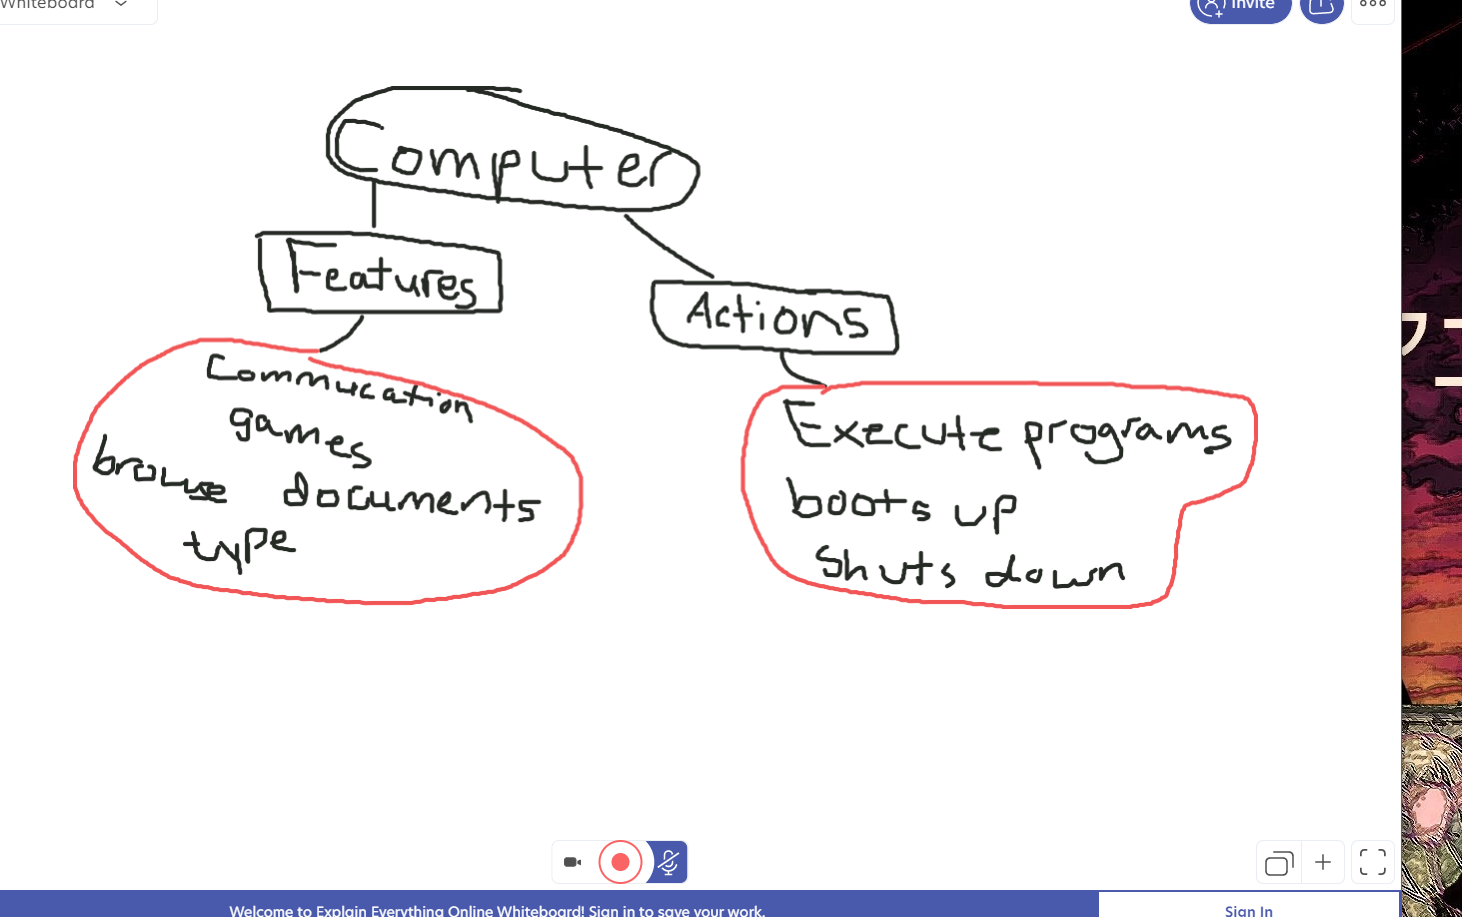 Whiteboard
Invite
Computer
Features
Actions
Commucation
games
browse documents
type
Execute programs
boots up
shuts down
Welcome to Explain Everything Online Whiteboard! Sign in to save your work.
Sign In